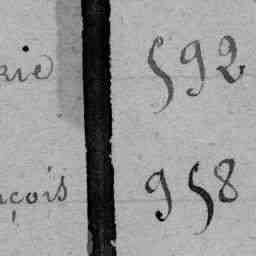 rie 592
nçois 958